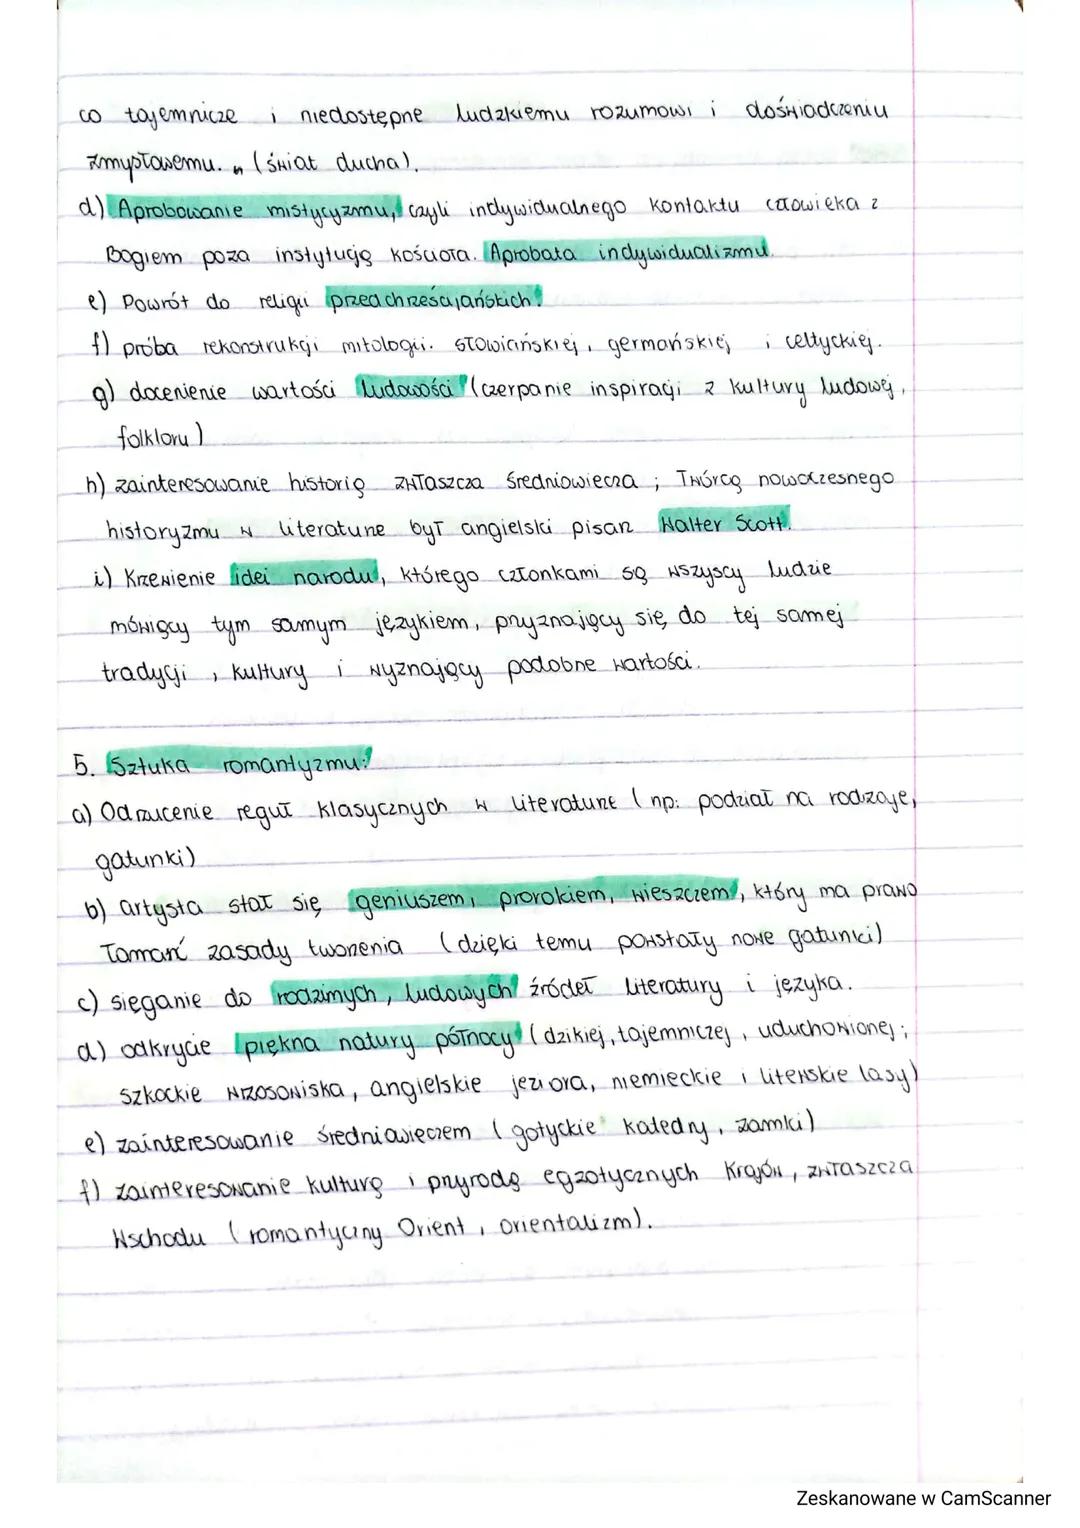 co tajemnicze i niedostępne ludzkiemu rozumowi i doświadczeniu
zmysłowemu. „ (świat ducha).
d) Aprobowanie mistycyzmu, czyli indywidualnego kontaktu człowieka z
Bogiem poza instytucją kościoła. Aprobata indywidualizmu.
e) Powrót do religii przedchrześcijańskich.
f) próba rekonstrukcji mitologii. słowiańskiej, germańskiej i celtyckiej.
g) docenienie wartości ludowości (czerpanie inspiracji z kultury ludowej,
folkloru)
h) zainteresowanie historią zwłaszcza średniowiecza ; Twórcą nowoczesnego
historyzmu w literaturze był angielski pisarz Walter Scott.
i) Krzewienie idei narodu, którego członkami są wszyscy ludzie
mówiący tym samym językiem, przyznający się do tej samej
tradycji, kultury i wyznający podobne wartości.
5. Sztuka romantyzmu:
a) Odrzucenie reguł klasycznych w literaturze (np: podział na rodzaje,
gatunki)
b) artysta stał się geniuszem, prorokiem, wieszczem, który ma prawo
łamać zasady tworzenia (dzięki temu powstały nowe gatunki)
c) sięganie do rodzimych, ludowych źródeł literatury i języka.
d) odkrycie piękna natury północy (dzikiej, tajemniczej, uduchowionej;
szkockie wrzosowiska, angielskie jeziora, niemieckie i litewskie lasy)
e) zainteresowanie średniowieczem (gotyckie katedry, zamki)
f) zainteresowanie kulturą i przyrodą egzotycznych krajów, zwłaszcza
Wschodu (romantyczny Orient, orientalizm).
Zeskanowane w CamScanner